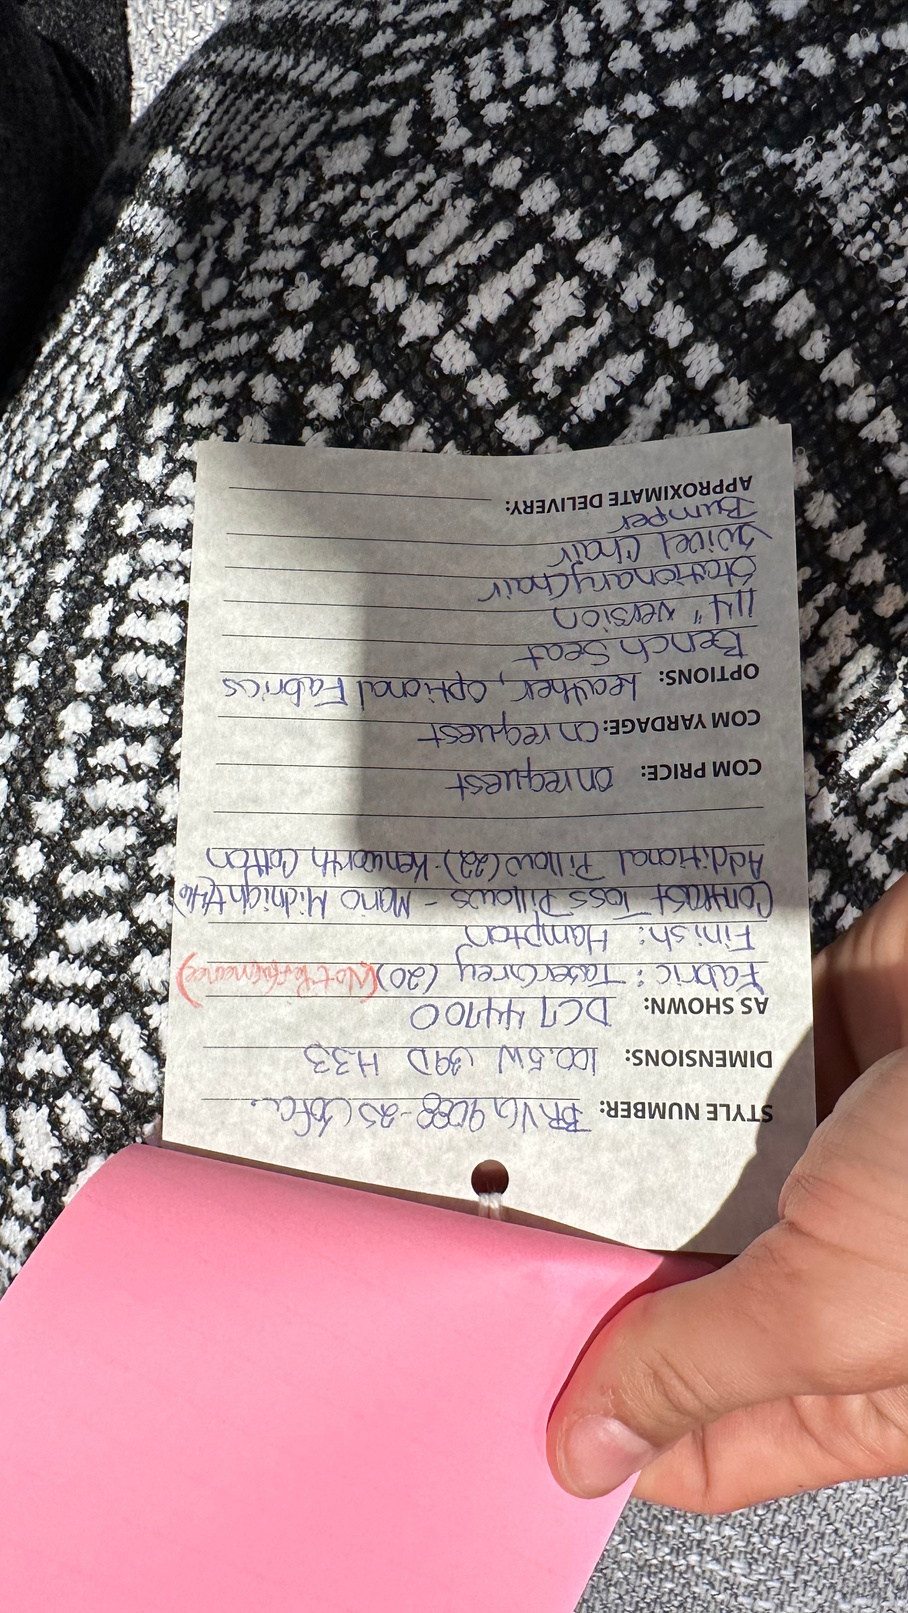 STYLE NUMBER: BRVG9088-2S Sofa
DIMENSIONS: 100.5W 39D H33
AS SHOWN: DCT 44700
Fabric: TaserGrey (20) (Not Performance)
Finish: Hampton
Contrast Toss Pillows - Mario Midnight (46)
Additional Pillow (22) - Kenworth Cotton
COM PRICE: onrequest
COM YARDAGE: onrequest
OPTIONS: Leather, Optional Fabrics
Bench Seat
114" version
Stationary Chair
Swivel Chair
Bumper
APPROXIMATE DELIVERY: